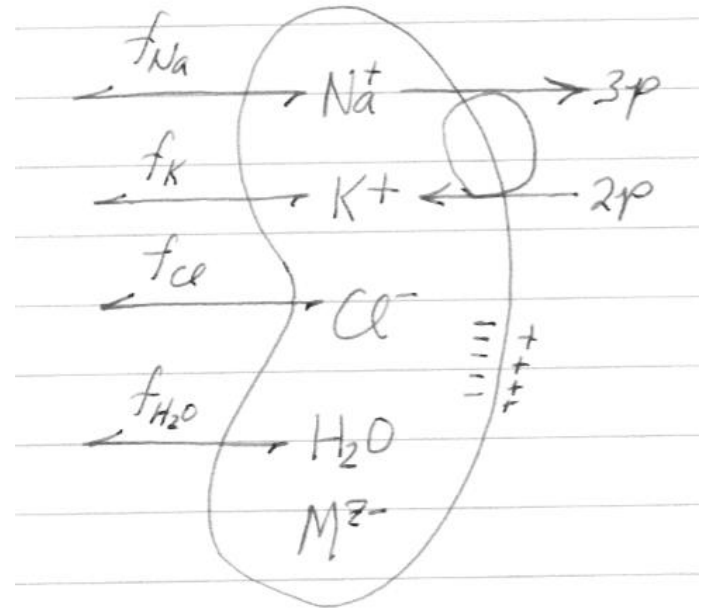 f_Na
Na+ 3p
f_K
K+ 2p
f_Cl
Cl-
- +
- +
- +
- +
f_H2O
H2O
M^z-